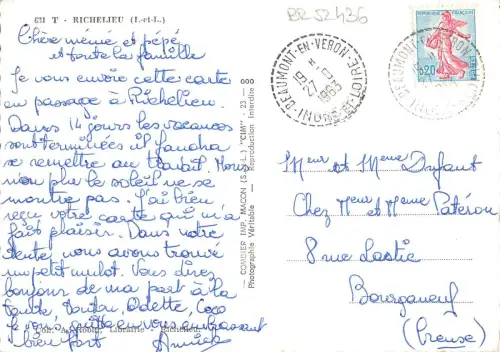 631 T - RICHELIEU (I.-et-L.)
BR 52436
Chère mémé et pépé
et toute la famille
Je vous envoie cette carte
en passage à Richelieu.
Dans 14 jours les vacances
sont terminées il faudra
se remettre au travail. Nous
non plus le soleil ne se
montre pas. J'ai bien
reçu votre carte qui m'a
fait plaisir. Dans votre
tente vous avons trouvé
un petit mulot. Vous direz
bonjour de ma part à la
Odette, Coco
Je vous quitte en vous embrassant
bien fort Annick
Robin, Librairie Richelieu
COMBIER IMP. MACON (S.-&-L.) "CIM" - 23 - 000
Photographie Véritable - Reproduction Interdite
BEAUMONT-EN-VERON
INDRE-ET-LOIRE
1963
REPUBLIQUE FRANÇAISE
0,20
POSTES
Meur et Meme Dufaut
Chez Meur et Meme Patéron
8 rue Lastic
Bourganeuf
(Creuse)